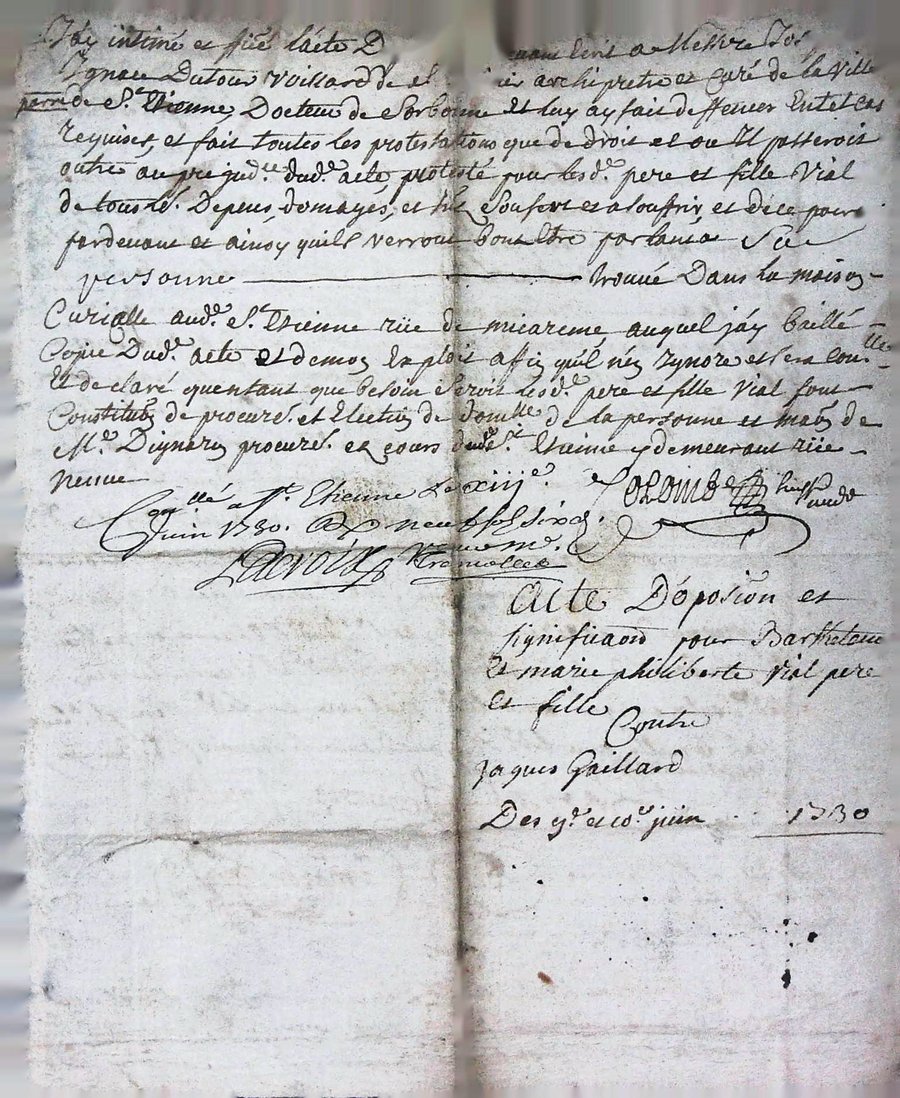 J'ay intimé et siné lacte D devant Ecrit a Messire Jos
Ignace Dutour Voillard de archipretre et Curé de la Ville
parre de St. Etienne, Docteur de Sorbonne et luy ay fait deffences En tel cas
requises, et fait toutes les protestations que de droit et ou Il passeroit
outre au prejude. dude. acte protesté pour lesde. pere et fille Vial
de tous Depens, domages, et Soufert et a souffrir, et de ce pour
pardevant et ainsy quils verront bon Etre parlant a Sa
personne trouvé Dans la maison
Curialle aude. St. Etienne rüe de micareme, auquel j'ay baillé
Copie Dude. acte et de mon Exploit affin qu'il n'en Ignore et
Et declaré quentant que besoin Seroit lesde. pere et fille Vial font
Constitution de procure. et Election de domille. de la personne et maon de
Me. procure. es cours de St. Etienne y demeurant rüe
neuve
Conllé a St. Etienne Le xiiie
Juin 1730. neuf sols six d.
Lacroix
Acte D'oposion et
signification pour Barthelemi
Et marie philiberte Vial pere
et fille
Contre
Jaques Gaillard
Des 9e. et 10e. juin 1730